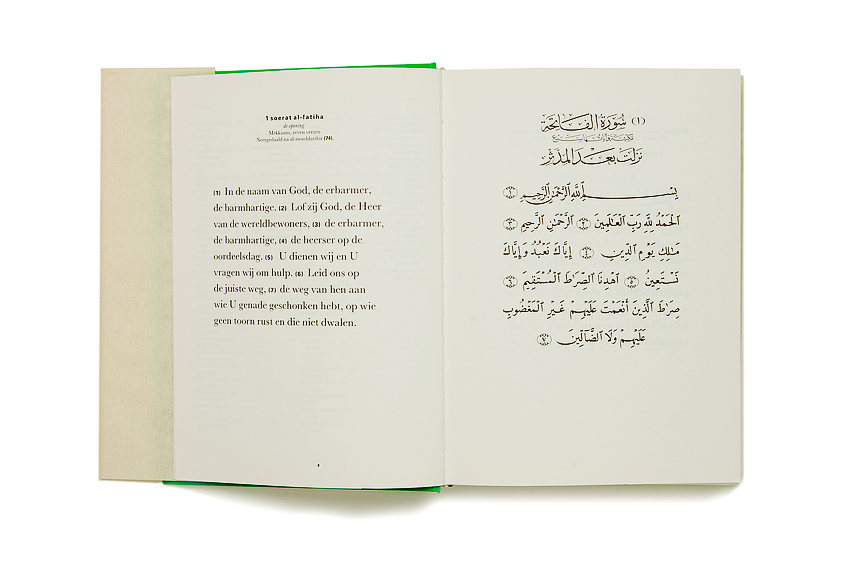 1 soerat al-fatiha
de opening
Mekkaans, zeven verzen
Neergedaald na al-moeddatthir (74).
(1) In de naam van God, de erbarmer,
de barmhartige. (2) Lof zij God, de Heer
van de wereldbewoners, (3) de erbarmer,
de barmhartige, (4) de heerser op de
oordeelsdag. (5) U dienen wij en U
vragen wij om hulp. (6) Leid ons op
de juiste weg, (7) de weg van hen aan
wie U genade geschonken hebt, op wie
geen toorn rust en die niet dwalen.
(١) سُورَة الفَاتِحَة
مكيّة وآياتها سبع
نزلت بعد المدثر
بِسْمِ ٱللَّهِ ٱلرَّحْمَٰنِ ٱلرَّحِيمِ ١
ٱلْحَمْدُ لِلَّهِ رَبِّ ٱلْعَٰلَمِينَ ٢ ٱلرَّحْمَٰنِ ٱلرَّحِيمِ ٣
مَٰلِكِ يَوْمِ ٱلدِّينِ ٤ إِيَّاكَ نَعْبُدُ وَإِيَّاكَ
نَسْتَعِينُ ٥ ٱهْدِنَا ٱلصِّرَٰطَ ٱلْمُسْتَقِيمَ ٦
صِرَٰطَ ٱلَّذِينَ أَنْعَمْتَ عَلَيْهِمْ غَيْرِ ٱلْمَغْضُوبِ
عَلَيْهِمْ وَلَا ٱلضَّآلِّينَ ٧